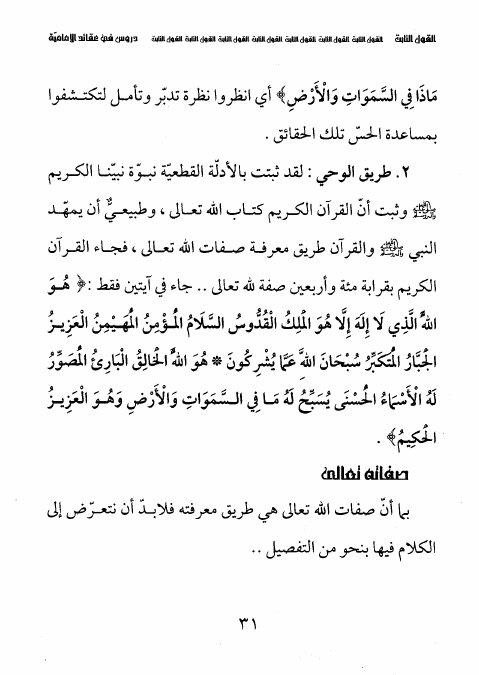 القول الثابت القول الثابت القول الثابت القول الثابت القول الثابت القول الثابت القول الثابت دروس في عقائد الإمامية
مَاذَا فِي السَّمَوَاتِ وَالْأَرْضِ﴾ أي انظروا نظرة تدبّر وتأمـل لتكتـشفوا
بمساعدة الحسّ تلك الحقائق .
٢. طريق الوحي : لقد ثبتت بالأدلّة القطعيّة نبوّة نبيّنـا الكـريم
ﷺ وثبت أنّ القرآن الكريم كتـاب الله تعـالى ، وطبيعـيٌّ أن يمهّـد
النبي ﷺ والقرآن طريق معرفـة صـفات الله تعـالى ، فجـاء القـرآن
الكريم بقرابة مئة وأربعين صفة لله تعالى .. جاء في آيتين فقط :﴿ هُـوَ
اللهُ الَّذِي لَا إِلَهَ إِلَّا هُوَ المَلِكُ الْقُدُّوسُ السَّلَامُ المُـؤْمِنُ المُهَيْمِنُ الْعَزِيـزُ
الجَبَّارُ المُتَكَبِّرُ سُبْحَانَ اللهِ عَمَّا يُشْرِكُونَ * هُوَ اللهُ الخَالِقُ الْبَارِئُ المُصَوِّرُ
لَهُ الْأَسْمَاءُ الحُسْنَى يُسَبِّحُ لَهُ مَـا فِي الـسَّمَوَاتِ وَالْأَرْضِ وَهُـوَ الْعَزِيـزُ
الحَكِيمُ﴾ .
صفاته تعالى
بما أنّ صفات الله تعالى هي طريق معرفته فلابـدّ أن نتعـرّض إلى
الكلام فيها بنحو من التفصيل ..
٣١